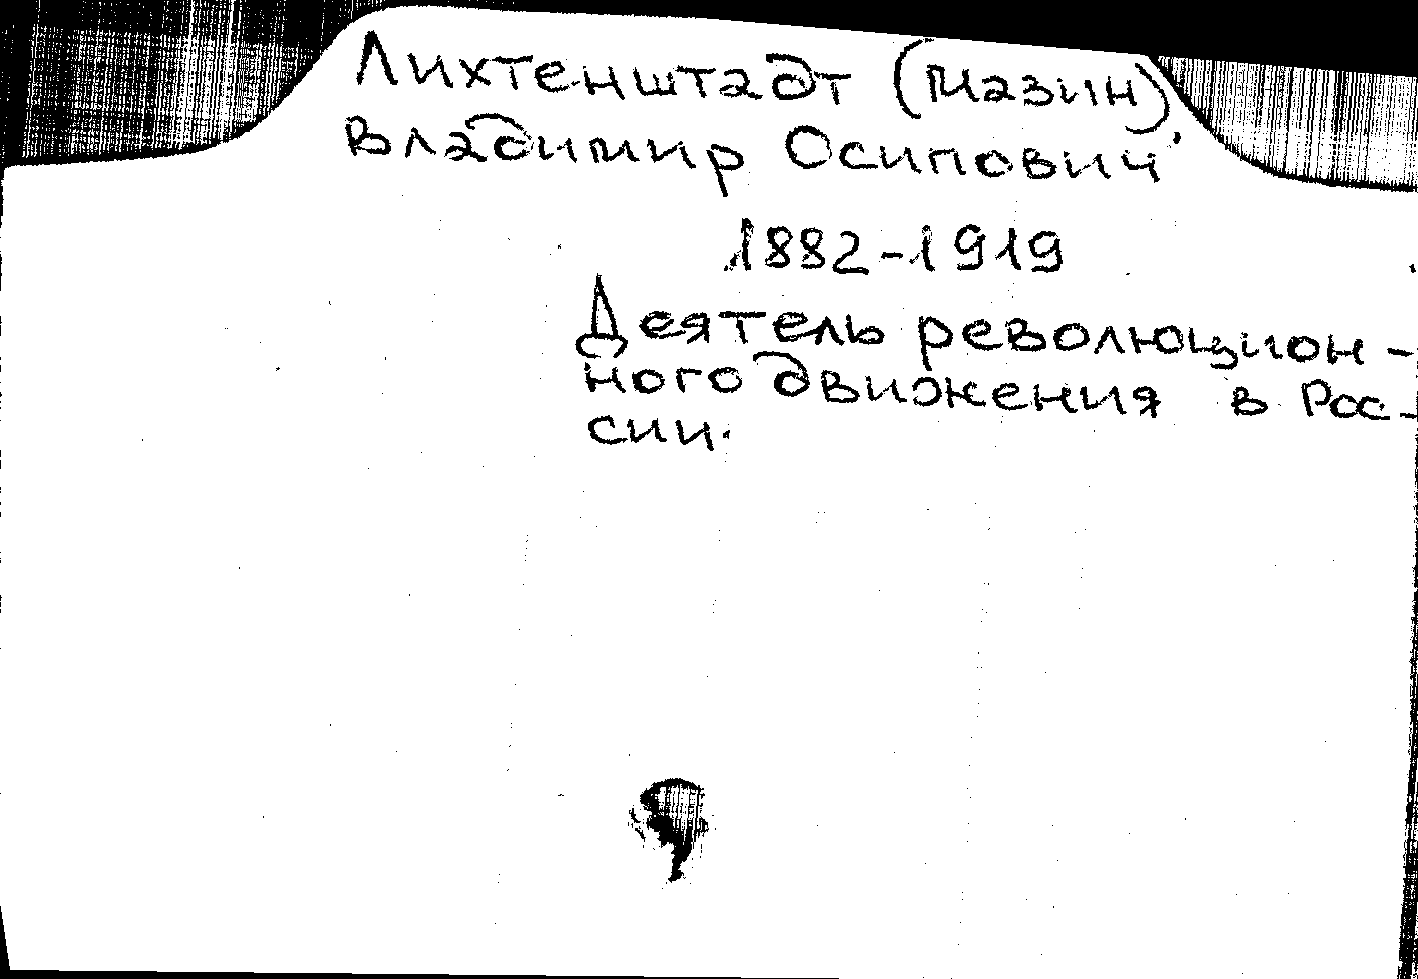 Лихтенштадт (Мазин),
Владимир Осипович
1882-1919
Деятель революцион-
ного движения в Рос-
сии.